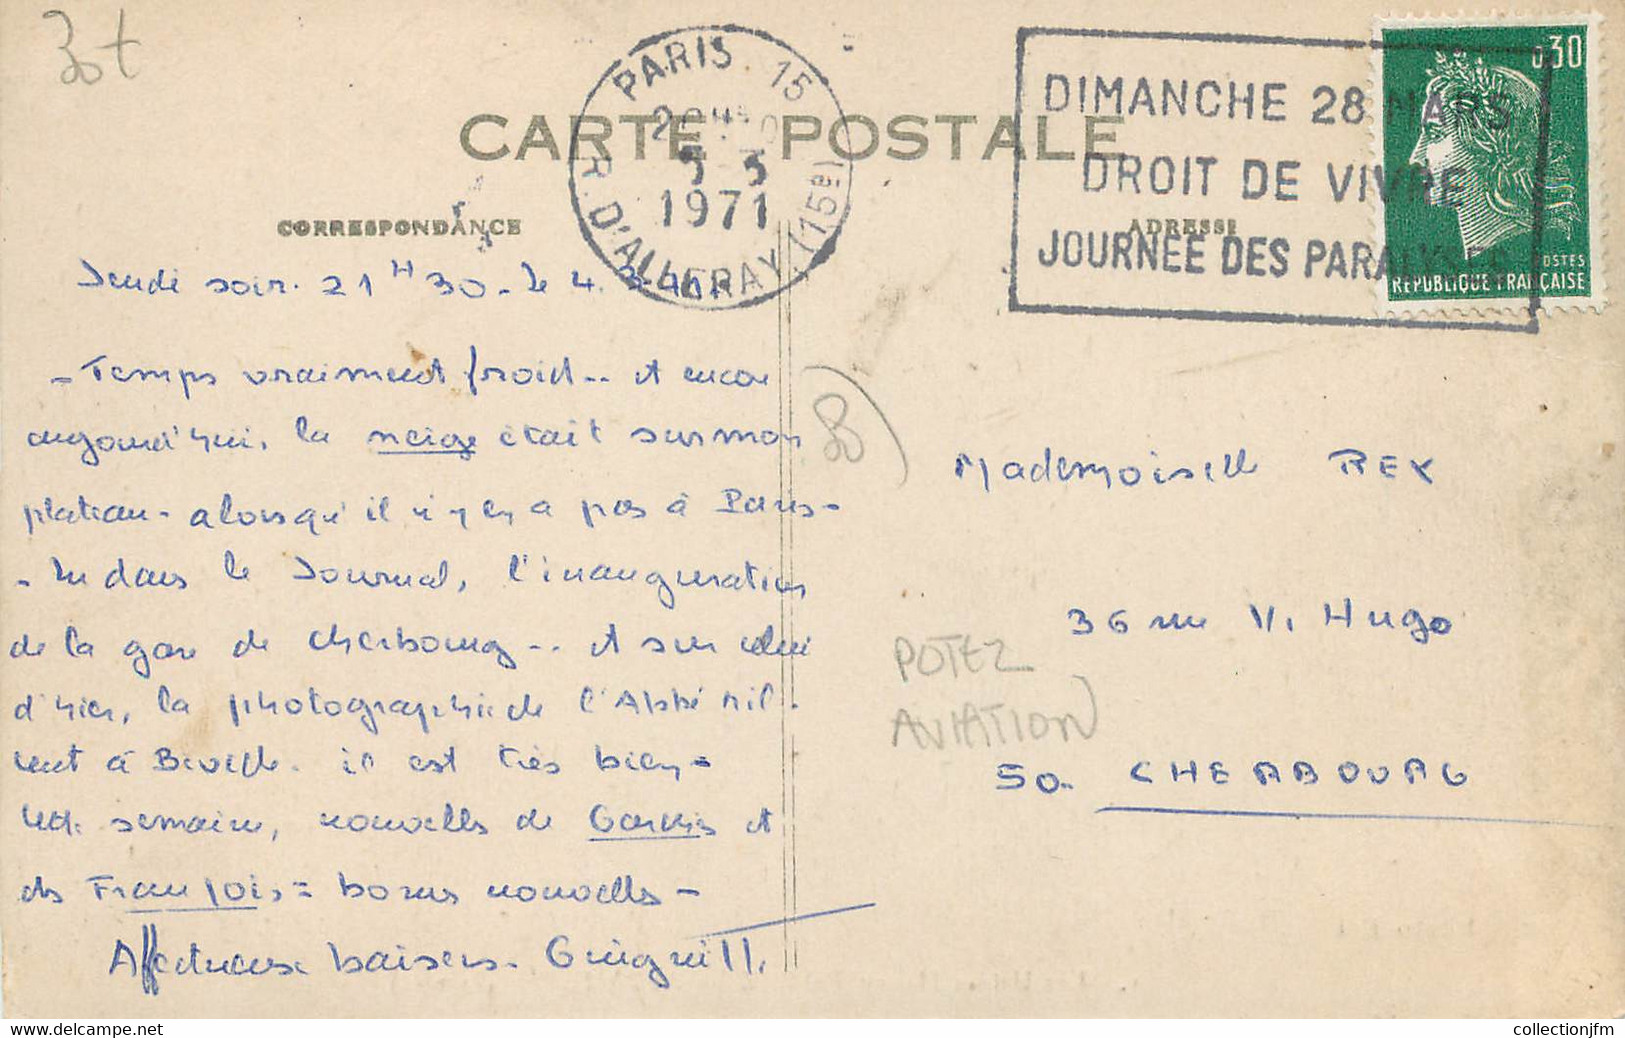 CARTE POSTALE
CORRESPONDANCE
ADRESSE
PARIS 15
5-3
1971
R. D'ALLERAY (15e)
DIMANCHE 28 MARS
DROIT DE VIVRE
JOURNEE DES PARALYSES
0,30
POSTES
REPUBLIQUE FRANÇAISE
Jeudi soir. 21 H 30 - le 4. 3.
- Temps vraiment froid.. et encore
aujourd'hui, la neige était sur mon
plateau - alors qu'il n'y en a pas à Paris -
- Lu dans le Journal, l'inauguration
de la gare de Cherbourg... et sur celui
d'hier, la photographie de l'Abbé
à il est très bien -
semaine, nouvelles de et
de François = bonnes nouvelles -
Affectueux baisers.
Mademoiselle REY
36 rue V. Hugo
50. CHERBOURG
POTEZ
AVIATION
collectionjfm